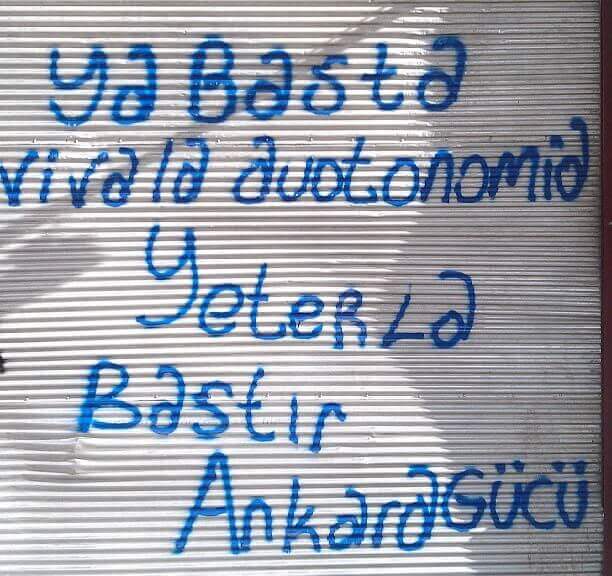 Ya Basta
viva la auotonomia
YeteR La
Bastır
Ankara GÜCÜ